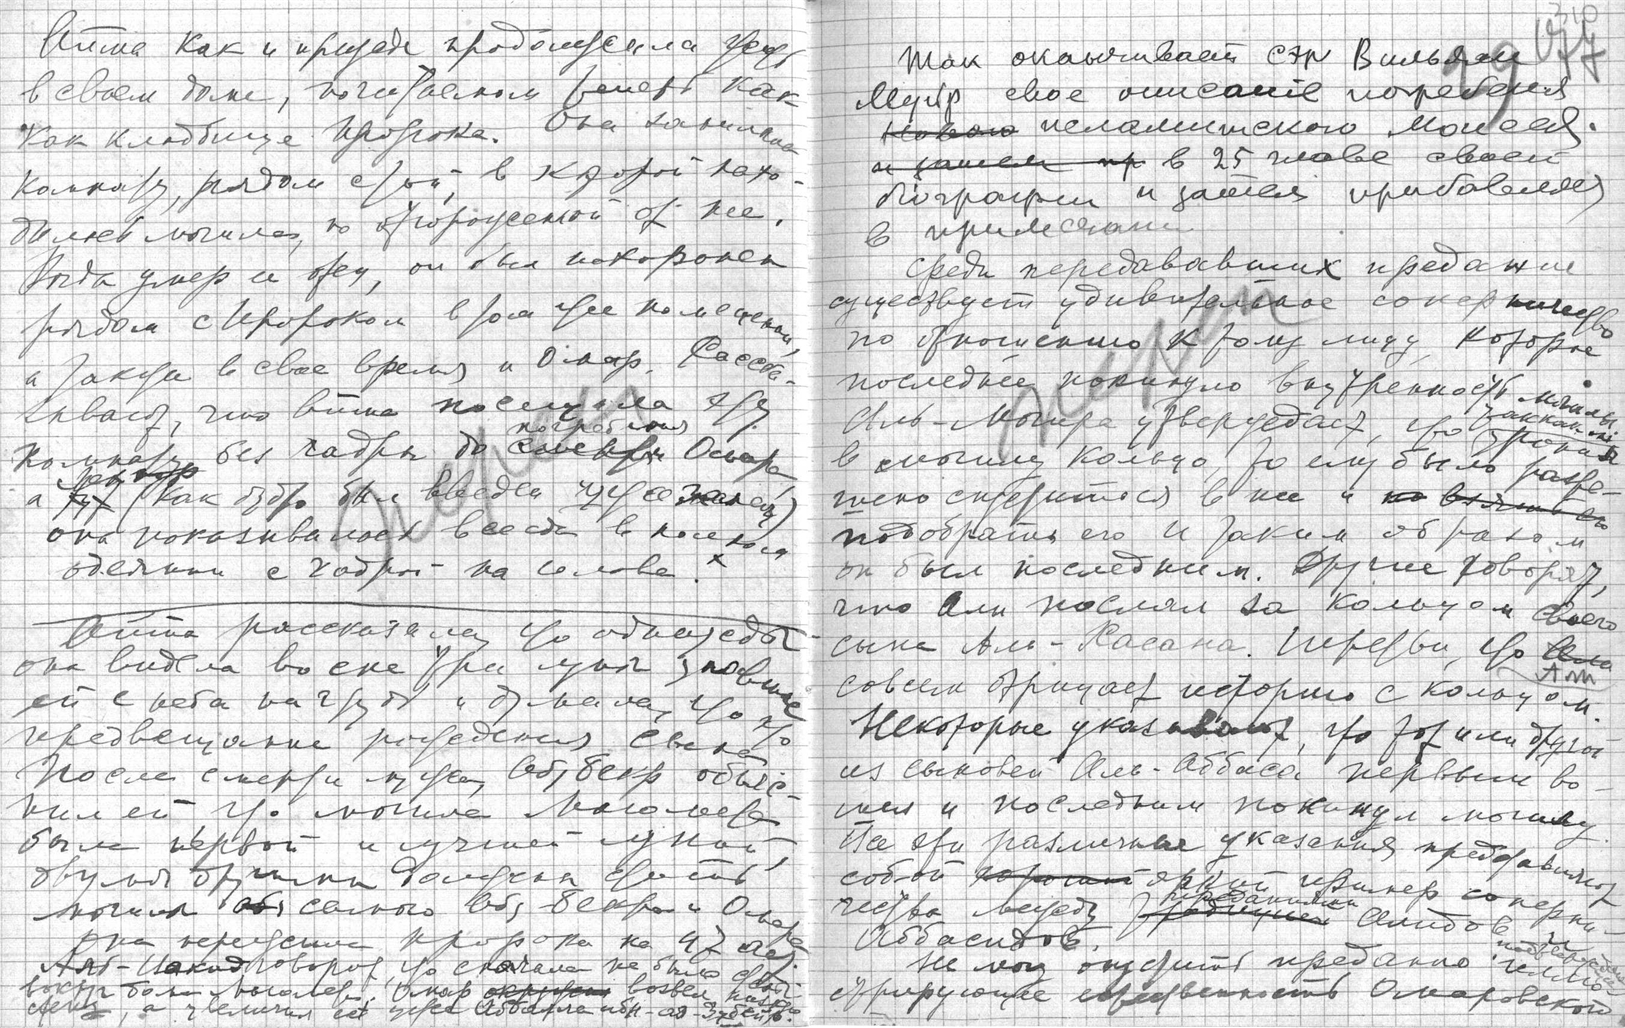 Айша как и прежде продолжала жить
в своем доме, почитаемом теперь как
как кладбище Пророка. Она занимала
комнату, рядом с той, в которой нахо-
дилась могила, но отгороженной от нее.
Когда умер ее отец, он был похоронен
рядом с Пророком в том же помещении,
а также в свое время и Омар. Рассказ-
ывают, что Айша посещала эту
комнату без чадры до погребения Омара,
а (как будто был введен чужеземец)
она показывалась всегда в полном
одеянии с чадрой на голове.
Айша рассказала, что однажды
она видела во сне три луны упавшие
ей с неба на грудь и думала, что это
предвещание рождения сына
После смерти мужа, Абу Бекр объяс-
нил ей что могила Магомета
была первой и лучшей луной,
двумя другими должны быть
могилы самого Абу Бекра и Омара
Она пережила Пророка на 47 лет.
говорит, что сначала не было стены
вокруг дома Магомета. Омар возвел низкую
стену, а увеличил ее Абдалла ибн-аз-Зубейр.
310
977
Так оканчивает сэр Вильям
Муир свое описание погребения
исламитского Моисея.
в 25 главе своей
биографии и затем прибавляет
в примечании
Среди передававших предание
существует удивительное соперничество
по отношению к тому лицу, которое
последнее покинуло внутренность могилы.
Аль-Могира утверждает, что
в могилу кольцо, то ему было разре-
шено спуститься в нее и
подобрать его и таким образом
он был последним. Другие говорят,
что Али послал за кольцом своего
сына Аль-Хасана. Третьи, что Али
совсем отрицает историю с кольцом.
Некоторые указывают, что тот или другой
из сыновей Аль-Аббаса первым во-
шел и последним покинул могилу.
Все эти различные указания представляют
собой яркий пример соперни-
чества между преданиями Алидов и
Аббасидов.
Не могу опустить предание
иллю-
стрирующее Омаровской